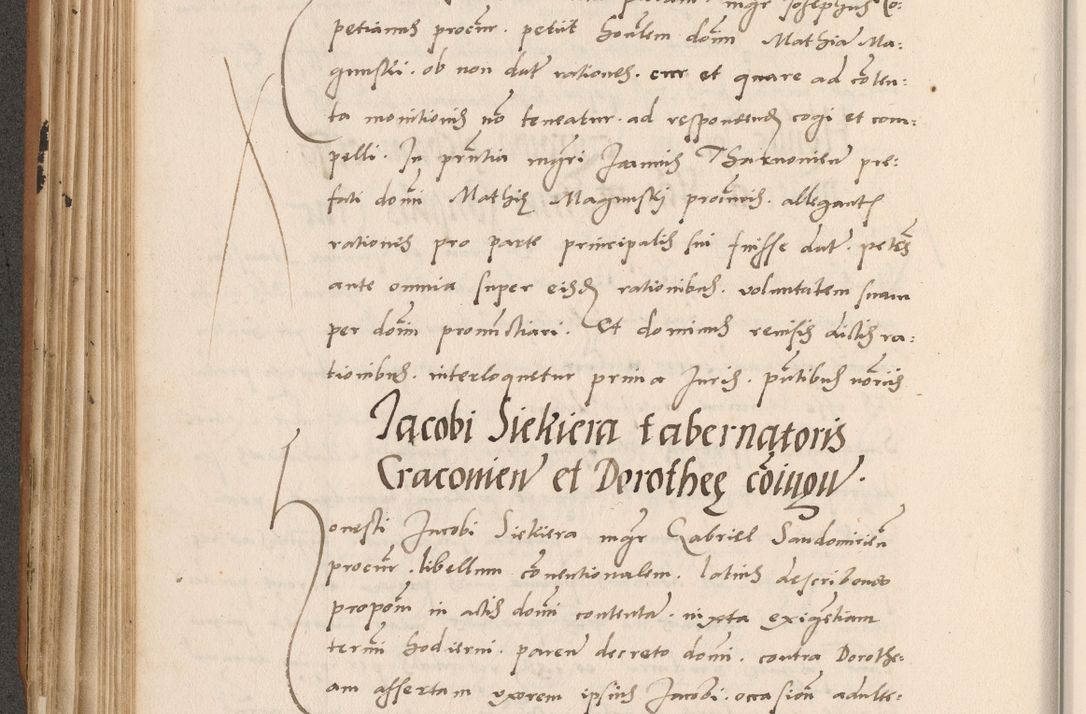 petianus procūr. petiit honlem domī Mathia Ma:
gunski. ob non dat͛ rationes. etc͛ et quare ad cōten:
ta monitionis nō teneatur. ad respondend͛ cogi et com:
pelli. In pn̄tia mgr̄i Joannis Tharnovien̄ pre:
fati domī Mathię Magunskj procūris. allegant͛
rationes pro parte principalis sui fuisse dat͛. petēs
ante omnia super eisd͛ rationibus. voluntatem suam
per domī pronūctiari. Et dominus revisis dictis ra:
tionibus. interloquetur prima Juris. pn̄tibus
Jacobi Siekiera tabernatoris
Cracovien̄ et Dorotheę cōiugū.
Honesti Jacobi Siekiera mgr̄ Gabriel Sandomirien̄
procūr. libellum cōventionalem. latius describendo
propoīn in actis domī contenta. iuxta exigētiam
termī hodierni. paren̄ decreto domī. contra Dorothe:
am assertam uxorem ipsius Jacobi. occasioīn adulte: